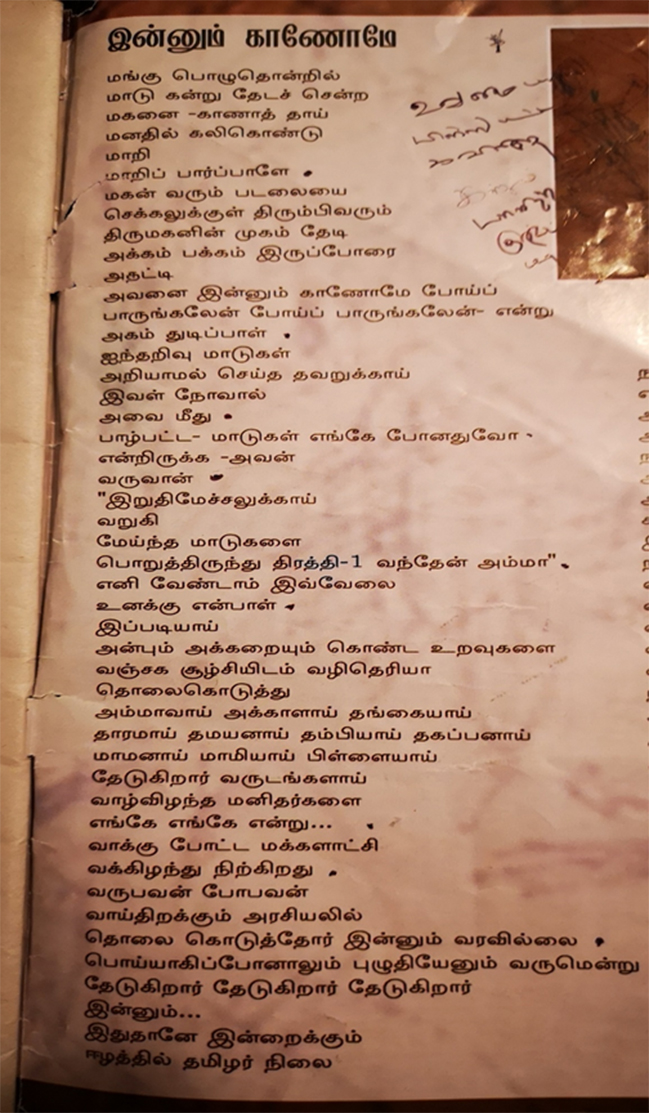 இன்னும் காணோமே
மங்கு பொழுதொன்றில்
மாடு கன்று தேடச் சென்ற
மகனை -காணாத் தாய்
மனதில் கலிகொண்டு
மாறி
மாறிப் பார்ப்பாளே
மகன் வரும் படலையை
செக்கலுக்குள் திரும்பிவரும்
திருமகனின் முகம் தேடி
அக்கம் பக்கம் இருப்போரை
அதட்டி
அவனை இன்னும் காணோமே போய்ப்
பாருங்கலேன் போய்ப் பாருங்கலேன்- என்று
அகம் துடிப்பாள்
ஐந்தறிவு மாடுகள்
அறியாமல் செய்த தவறுக்காய்
இவள் நோவால்
அவை மீது
பாழ்பட்ட- மாடுகள் எங்கே போனதுவோ
என்றிருக்க -அவன்
வருவான்
"இறுதிமேச்சலுக்காய்
வறுகி
மேய்ந்த மாடுகளை
பொறுத்திருந்து திரத்தி-1 வந்தேன் அம்மா"
எனி வேண்டாம் இவ்வேலை
உனக்கு என்பாள்
இப்படியாய்
அன்பும் அக்கறையும் கொண்ட உறவுகளை
வஞ்சக சூழ்சியிடம் வழிதெரியா
தொலைகொடுத்து
அம்மாவாய் அக்காளாய் தங்கையாய்
தாரமாய் தமயனாய் தம்பியாய் தகப்பனாய்
மாமனாய் மாமியாய் பிள்ளையாய்
தேடுகிறார் வருடங்களாய்
வாழ்விழந்த மனிதர்களை
எங்கே எங்கே என்று...
வாக்கு போட்ட மக்களாட்சி
வக்கிழந்து நிற்கிறது
வருபவன் போபவன்
வாய்திறக்கும் அரசியலில்
தொலை கொடுத்தோர் இன்னும் வரவில்லை
பொய்யாகிப்போனாலும் புழுதியேனும் வருமென்று
தேடுகிறார் தேடுகிறார் தேடுகிறார்
இன்னும்...
இதுதானே இன்றைக்கும்
ஈழத்தில் தமிழர் நிலை